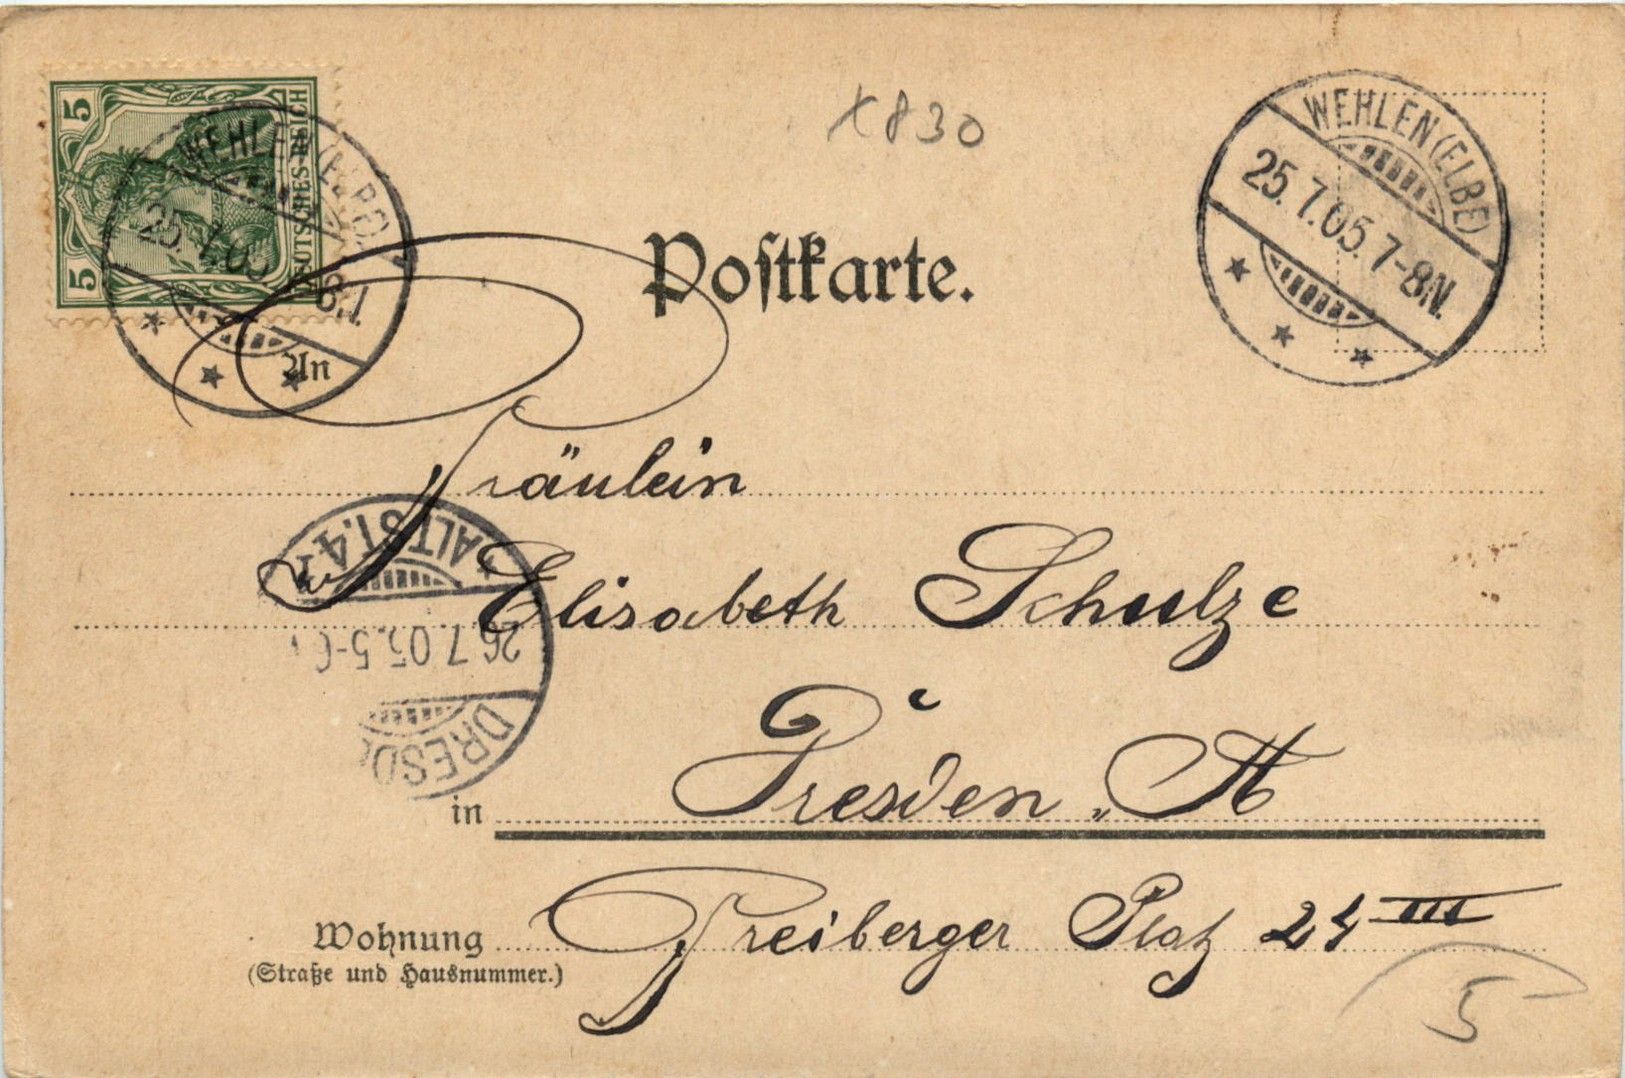 5 DEUTSCHES REICH 5
WEHLEN (ELBE)
25.7.05
WEHLEN (ELBE)
25.7.05.7-8N.
x830
Postkarte.
An
Fräulein
Elisabeth Schulze
ALTST. 4
26.7.05.5-6
DRESD
in Dresden. A
Wohnung Freiberger Platz 24 III
(Straße und Hausnummer.)
5